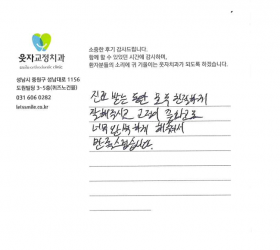 웃자교정치과
성남시 중원구 성남대로 1156
도원빌딩 3~5층(퀴즈노건물)
031 606 0282
letssmile.co.kr
소중한 후기 감사드립니다.
함께 할 수 있었던 시간에 감사하며,
환자분들의 소리에 귀 기울이는 웃자치과가 되도록 하겠습니다.
진료 받는 동안 모두 친절하게
잘해주시고 교정 결과도
너무 완벽하게 해주셔서
만족스럽습니다.